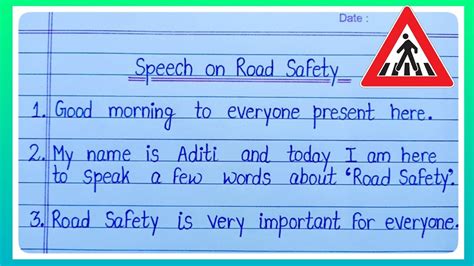 Date :
Speech on Road Safety
1. Good morning to everyone present here.
2. My name is Aditi and today I am here
to speak a few words about 'Road Safety'.
3. Road Safety is very important for everyone.